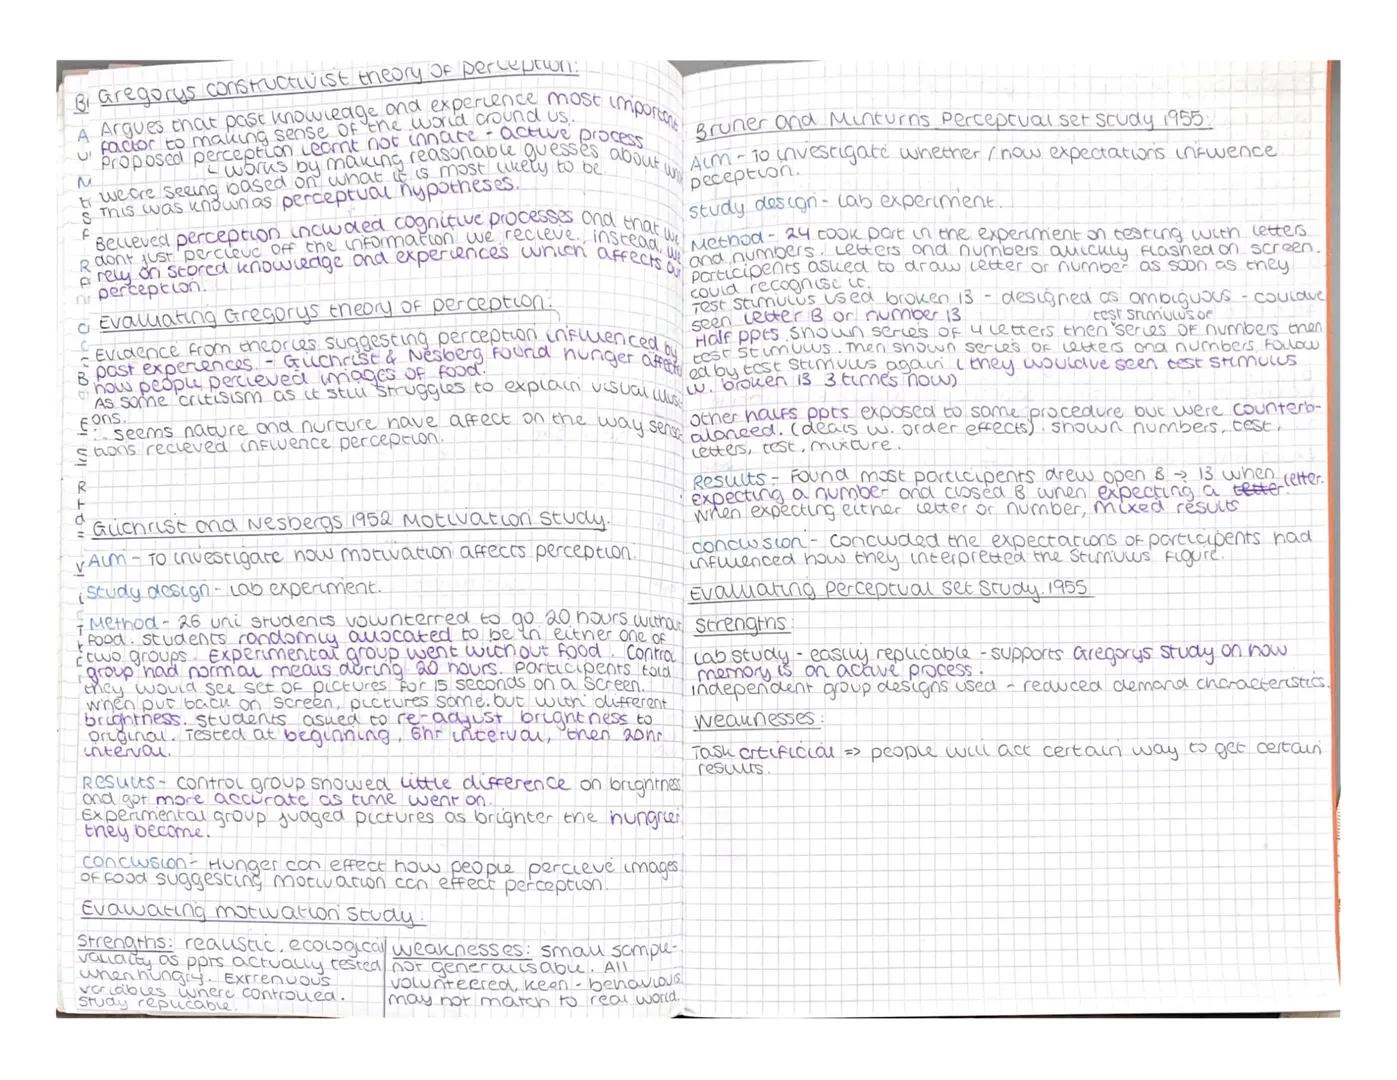 Gregorys constructivist theory of perception:
Argues that past knowledge and experience most important
factor to making sense of the world around us.
Proposed perception learnt not innate - active process
works by making reasonable guesses about
we are seeing based on what it is most likely to be
This was known as perceptual hypotheses.
Believed perception included cognitive processes and that we
dont just percieve off the information we recieve, instead, we
rely on stored knowledge and experiences which affects our
perception.
Evaluating Gregorys theory of perception:
Evidence from theories suggesting perception influenced by
past experiences. - Gilchrist & Nesberg found hunger affects
how people percieved images of food.
As some critisism as it still struggles to explain visual illusi
ons.
∴ seems nature and nurture have affect on the way sensa
tions recieved influence perception.
Gilchrist and Nesbergs 1952 Motivation study.
Aim - To investigate how motivation affects perception.
Study design - Lab experiment.
Method - 26 uni students volunterred to go 20 hours without
food. Students randomly allocated to be in either one of
two groups. Experimental group went without food. Control
group had normal meals during 20 hours. Participents told
they would see set of pictures for 15 seconds on a screen.
When put back on screen, pictures same, but with different
brightness. Students asked to re-adjust brightness to
original. Tested at beginning, 6hr interval, then 20hr
interval.
Results - Control group showed little difference on brightness
and got more accurate as time went on.
Experimental group judged pictures as brighter the hungrier
they become.
Conclusion - Hunger can effect how people percieve images
of food suggesting motivation can effect perception.
Evaluating motivation study:
Strengths: realistic, ecological
validity as ppts actually tested
when hungry. Extrenuous
variables where controlled.
Study replicable.
Weaknesses: small sample -
not generalisable. All
volunteered, keen - behaviours
may not match to real world.
Bruner and Minturns Perceptual set study 1955:
Aim - To investigate whether / how expectations influence
peception.
Study design - Lab experiment.
Method - 24 took part in the experiment on testing with letters
and numbers. Letters and numbers quickly flashed on screen.
Participents asked to draw letter or number as soon as they
could recognise it.
Test stimulus used broken 13 - designed as ambiguous - couldve
seen letter B or number 13
test stimulus of
Half ppts shown series of 4 letters then series of numbers then
test stimulus. Then shown series of letters and numbers, follow
ed by test stimulus again (they wouldve seen test stimulus
w. broken 13 3 times now)
Other halfs ppts exposed to same procedure but were counterb-
alanced. (deals w. order effects). Shown numbers, test,
letters, test, mixture.
Results - Found most participents drew open B → 13 when
expecting a number and closed B when expecting a letter.
When expecting either letter or number, mixed results
Conclusion - Concluded the expectations of participents had
influenced how they interpretted the stimulus figure.
Evaluating perceptual set study. 1955
Strengths:
Lab study - easily replicable - supports Gregorys study on how
memory is an active process.
Independent group designs used - reduced demand characteristics.
Weaknesses:
Task artificial => people will act certain way to get certain
results.